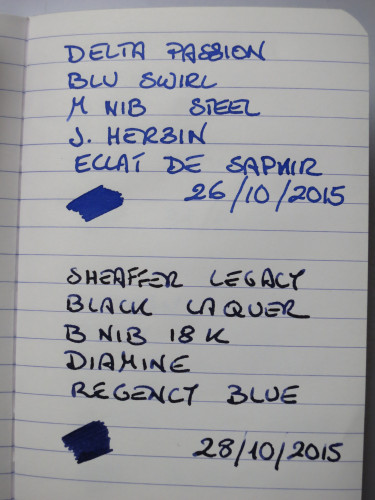 DELTA PASSION
BLU SWIRL
M NIB STEEL
J. HERBIN
ECLAT DE SAPHIR
26/10/2015
SHEAFFER LEGACY
BLACK LAQUER
B NIB 18 K
DIAMINE
REGENCY BLUE
28/10/2015